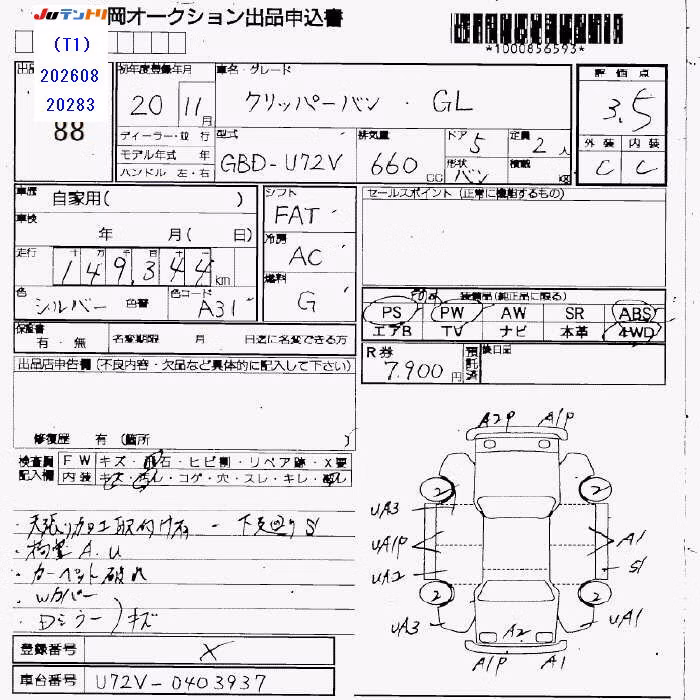 JUテントリ 岡オークション出品申込書
(T1)
202608
20283
*1000856593*
出品
88
初年度登録年月
20 11月
車名・グレード
クリッパーバン・GL
評価点
3.5
外装 内装
C C
ディーラー・並行
モデル年式 年
ハンドル 左・右
型式
GBD-U72V
排気量
660 CC
ドア 5
形状
バン
定員 2人
積載 kg
車歴 自家用( )
車検 年 月( 日)
走行 十万千百十
149,344 km
色 シルバー 色替
色コード A31
シフト
FAT
冷房
AC
燃料
G
セールスポイント (正常に機能するもの)
装備品(純正品に限る)
PS PW AW SR ABS
エアB TV ナビ 本革 4WD
保証書
有・無
名変期限 月 日迄に名変できる方
R券
7,900円
預託済
後日品
出品店申告欄 (不良内容・欠品など具体的に記入して下さい)
修復歴 有 (箇所 )
検査員記入欄
FW キズ・飛石・ヒビ割・リペア跡・X要
内装 キズ・汚れ・コゲ・穴・スレ・キレ・
・天張り加工取付け有 - 下回りS1
・荷室A.U
・カーペット破れ
・Wカバー
・Dミラー)キズ
登録番号 X
車台番号 U72V-0403937
A2P A1P
2 2
UA3
UA1P A1
UA2 S1
2 2
UA3 UA1
A2
A1P A1